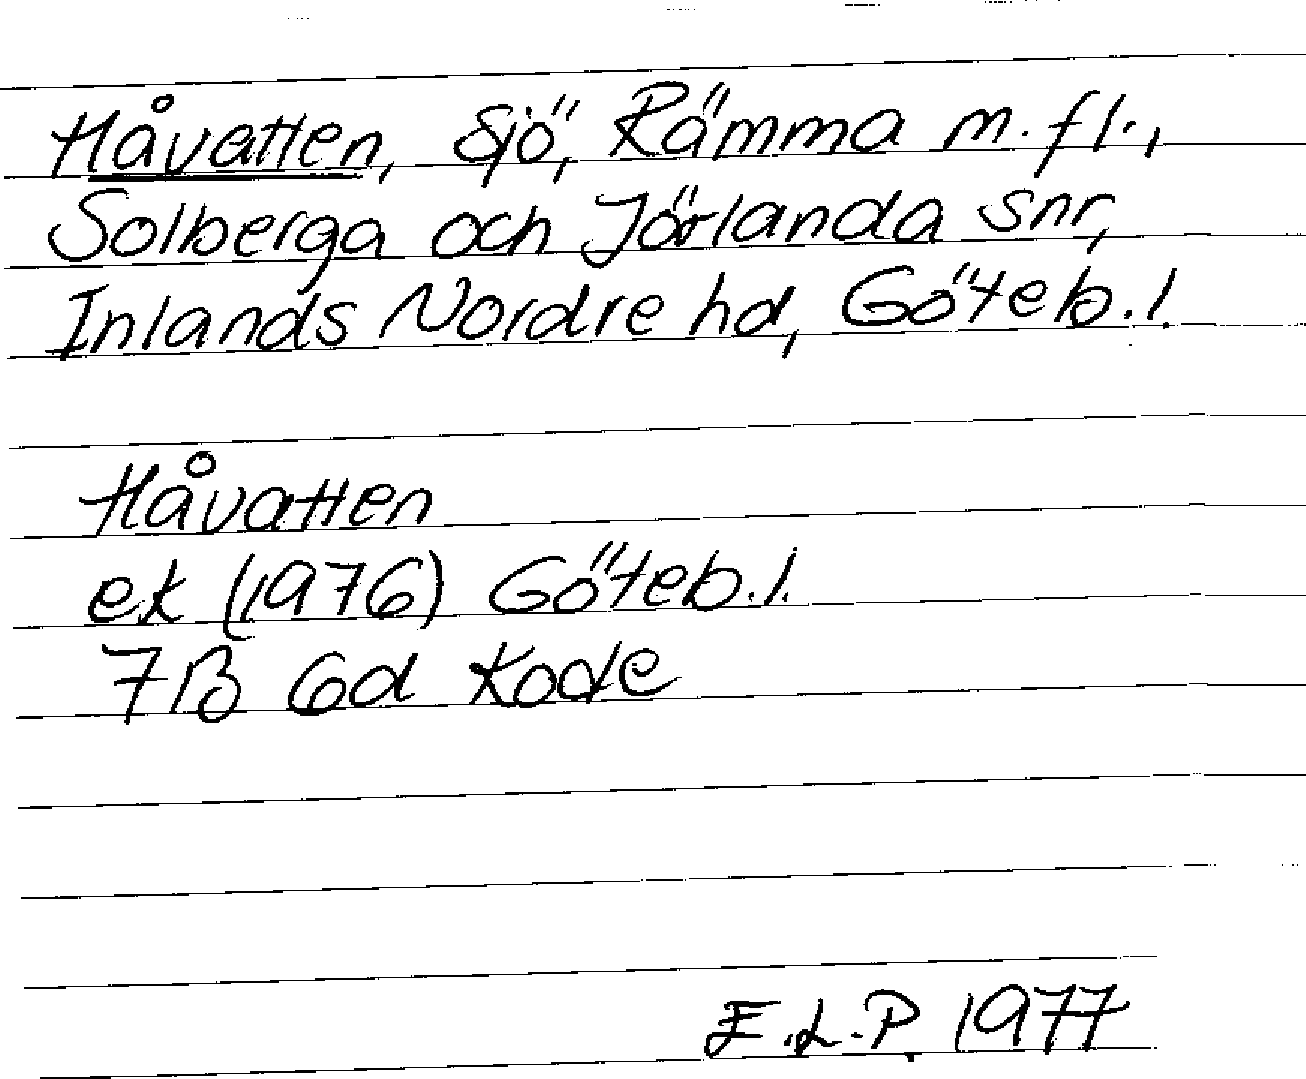 Håvatten, sjö, Rämma m. fl.,
Solberga och Jörlanda snr,
Inlands Nordre hd, Göteb.l.
Håvatten
ek (1976) Göteb.l.
7B 6d Kode
E.L.P. 1977